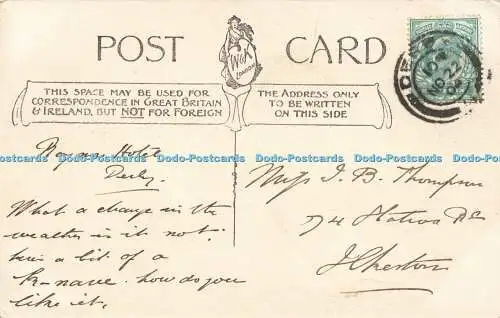 POST CARD
W&K
LONDON
THIS SPACE MAY BE USED FOR
CORRESPONDENCE IN GREAT BRITAIN
& IRELAND, BUT NOT FOR FOREIGN
THE ADDRESS ONLY
TO BE WRITTEN
ON THIS SIDE
Dodo-Postcards Dodo-Postcards Dodo-Postcards Dodo-Postcards Dodo-Postcards Dodo-Postcards
Derby
What a change in the
weather is it not.
here a bit of a
K-nave. how do you
like it.
Miss J. B. Thompson
74 Station Rd
Ilkeston